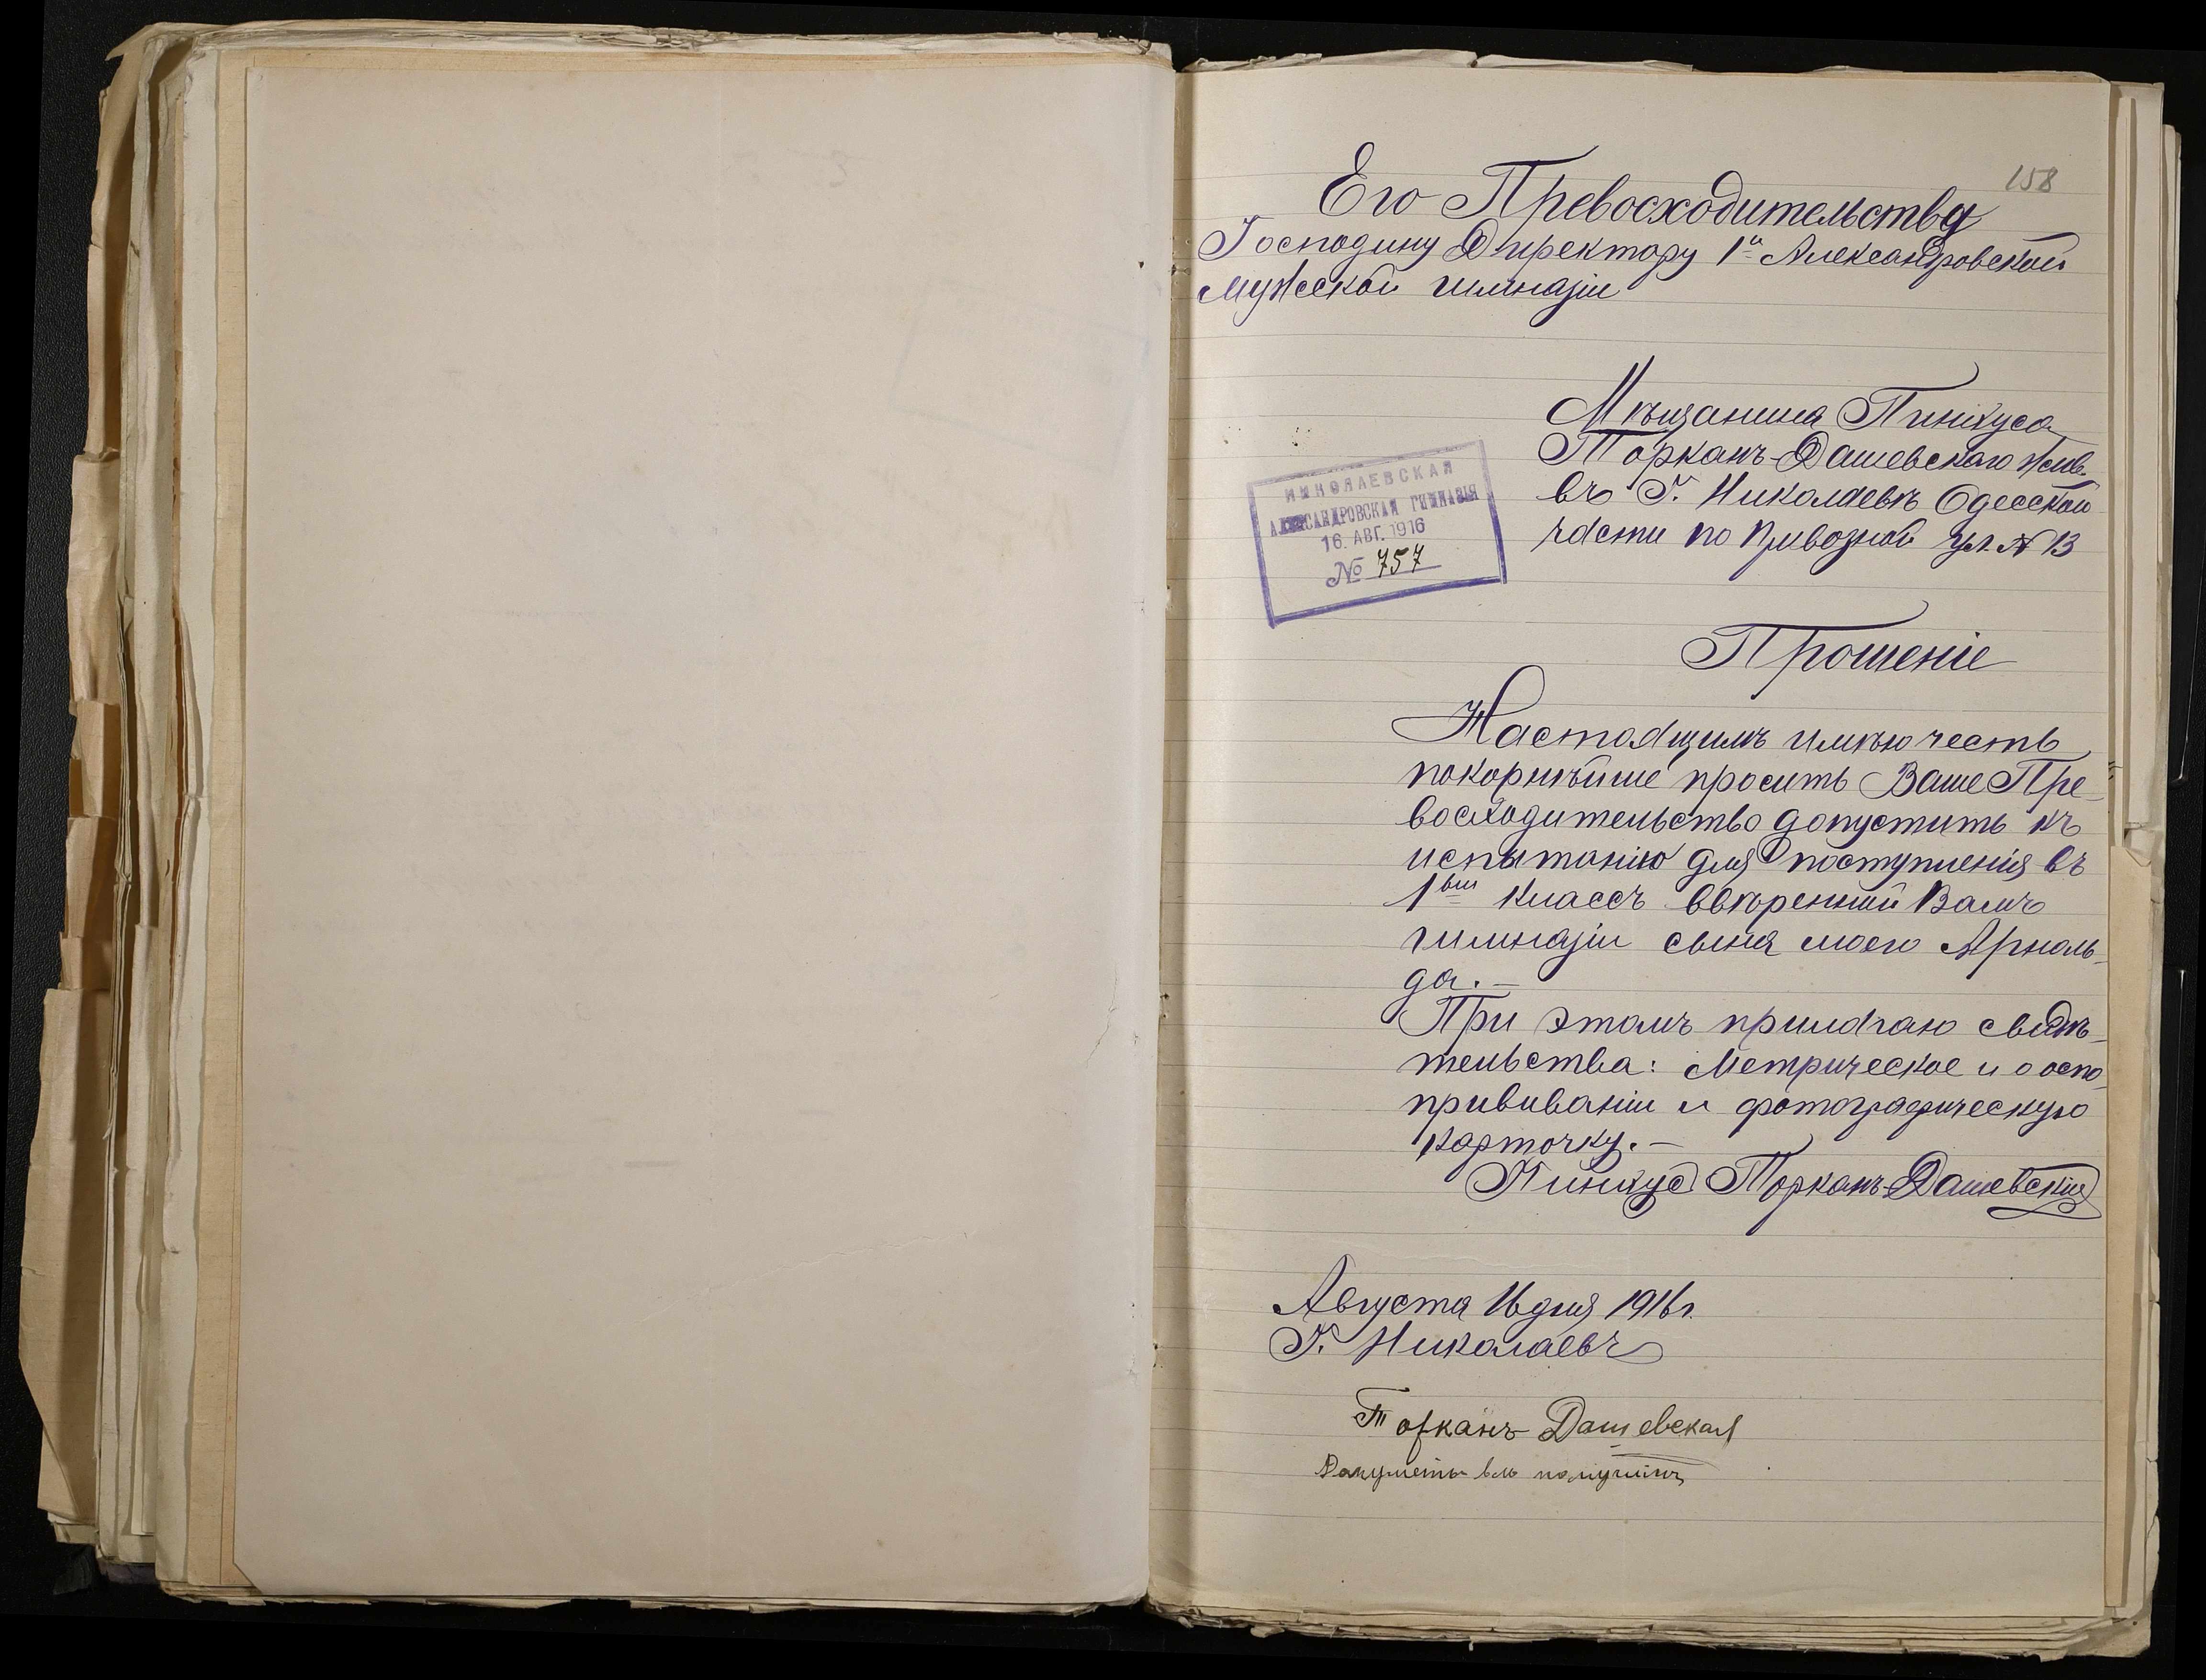 158
Его Превосходительства
Господину Директору 1й Александровской
мужской гимназіи
Мѣщанина Пинхуса
Торканъ-Дашевскаго жив.
въ Г. Николаевѣ Одесской
части по Привозной ул. № 13
НИКОЛАЕВСКАЯ
АЛЕКСАНДРОВСКАЯ ГИМНАЗІЯ
16. АВГ. 1916
№ 757
Прошеніе
Настоящимъ имѣю честь
покорнѣйше просить Ваше Пре-
восходительство допустить къ
испытанію для поступленія въ
1вый классъ ввѣренный Вамъ
гимназіи сына моего Арноль-
да. —
При этомъ прилагаю свидѣ-
тельства: Метрическое и о оспо-
прививаніи и фотографическую
карточку. —
Пинхус Торканъ-Дашевскій
Августа 16 дня 1916 г.
Г. Николаевъ
Торканъ-Дашевская
Документы